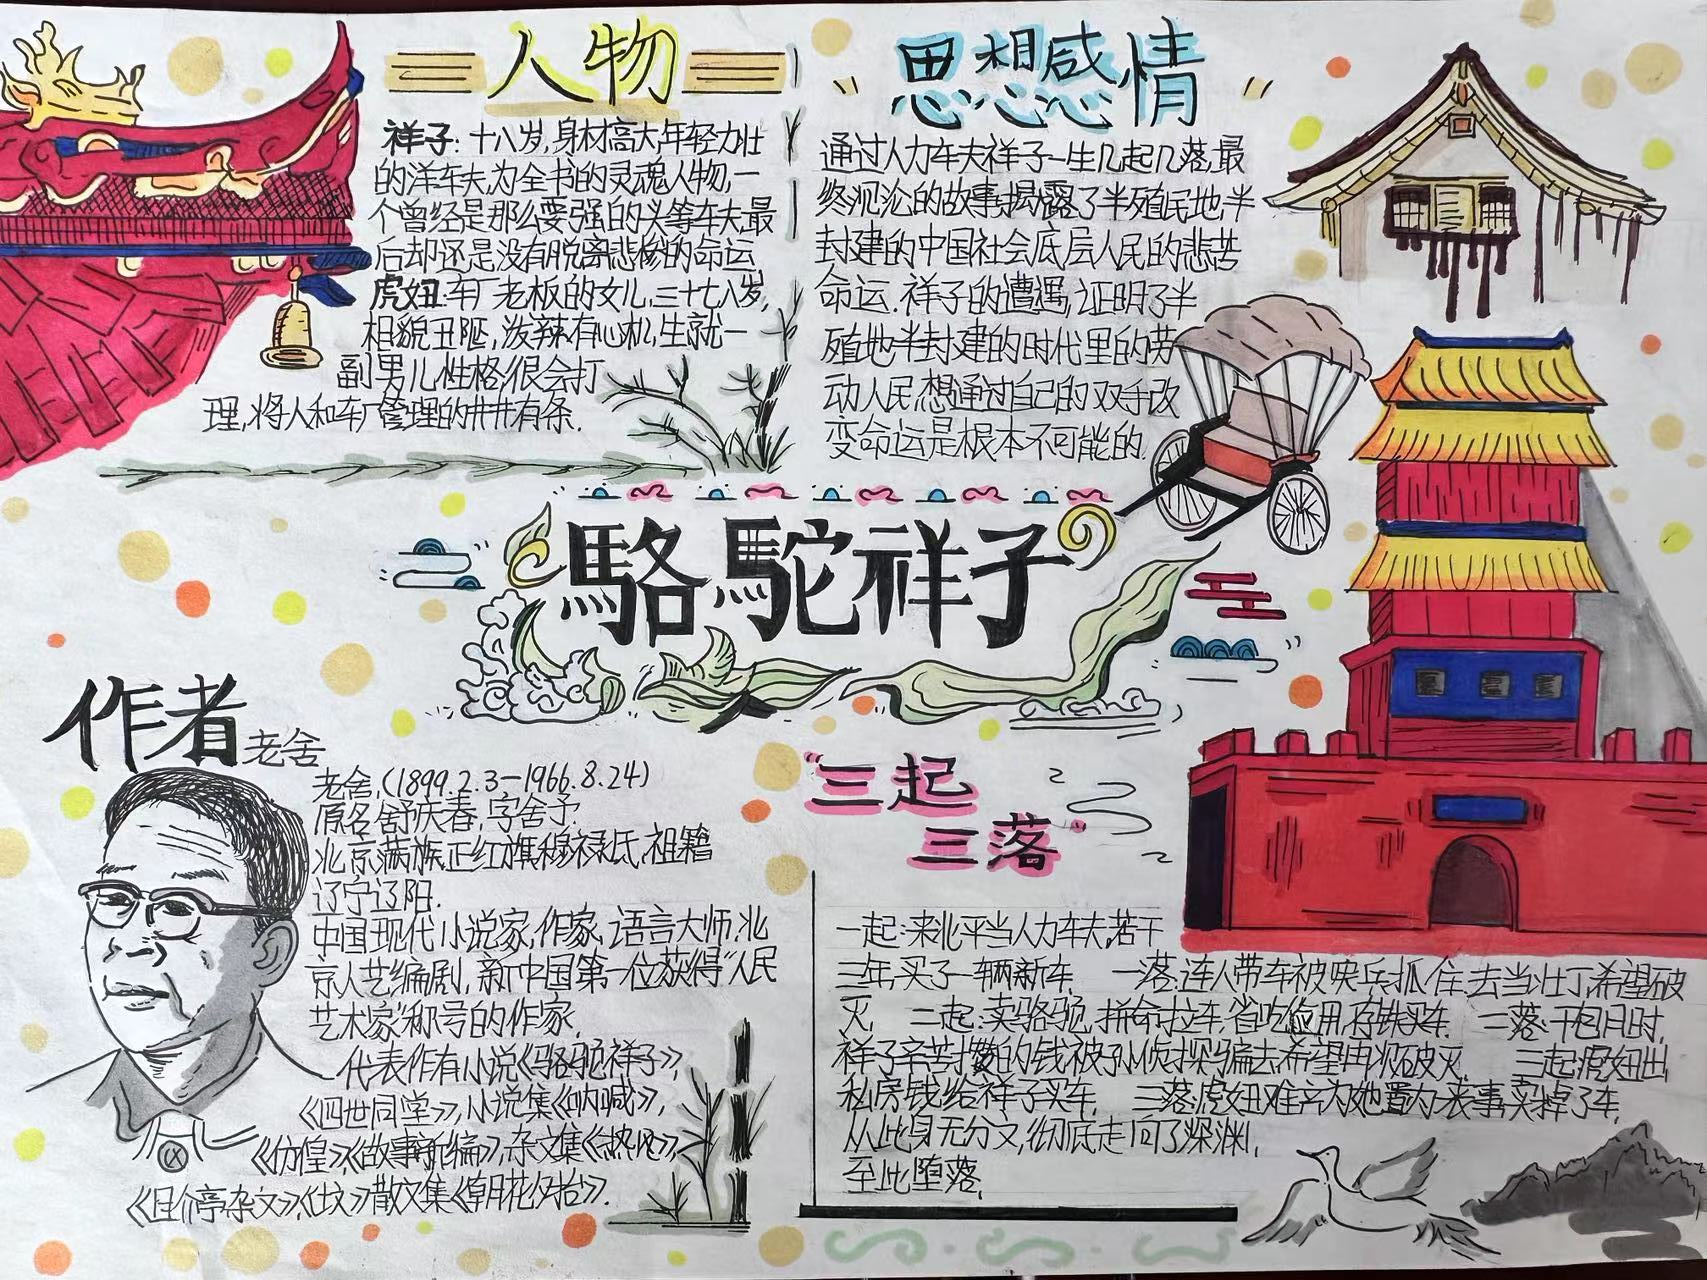 人物
祥子:十八岁,身材高大,年轻力壮
的洋车夫,为全书的灵魂人物,一
个曾经是那么要强的头等车夫,最
后却还是没有脱离悲惨的命运
虎妞:车厂老板的女儿,三十七八岁,
相貌丑陋,泼辣有心机,生就一
副男儿性格,很会打
理,将人和车厂管理的井井有条.
思想感情
通过人力车夫祥子一生几起几落,最
终沉沦的故事,揭露了半殖民地,半
封建的中国社会底层人民的悲苦
命运.祥子的遭遇,证明了半
殖地半封建的时代里的劳
动人民想通过自己的双手改
变命运是根本不可能的.
駱駝祥子
作者 老舍
老舍,(1899.2.3-1966.8.24)
原名舒庆春,字舍予.
北京满族正红旗穆禄氏,祖籍
辽宁辽阳.
中国现代小说家,作家,语言大师,北
京人艺编剧,新中国第一位获得"人民
艺术家"称号的作家.
代表作有小说《骆驼祥子》,
《四世同堂》,小说集《呐喊》,
《彷徨》,《故事新编》,杂文集《热风》,
《且介亭杂文》,《坟》散文集《朝花夕拾》.
"三起
三落"
一起:来北平当人力车夫,若干
三年,买了一辆新车. 一落:连人带车被映兵抓住,去当壮丁,希望破
灭. 二起:卖骆驼,拼命拉车,省吃俭用,存钱买车. 二落:干包月时,
祥子辛苦攒的钱被孙侦探骗去,希望再次破灭. 三起:虎妞出
私房钱给祥子买车. 三落:虎妞难产为她置办丧事,卖掉了车.
从此身无分文,彻底走向了深渊,
至此堕落.